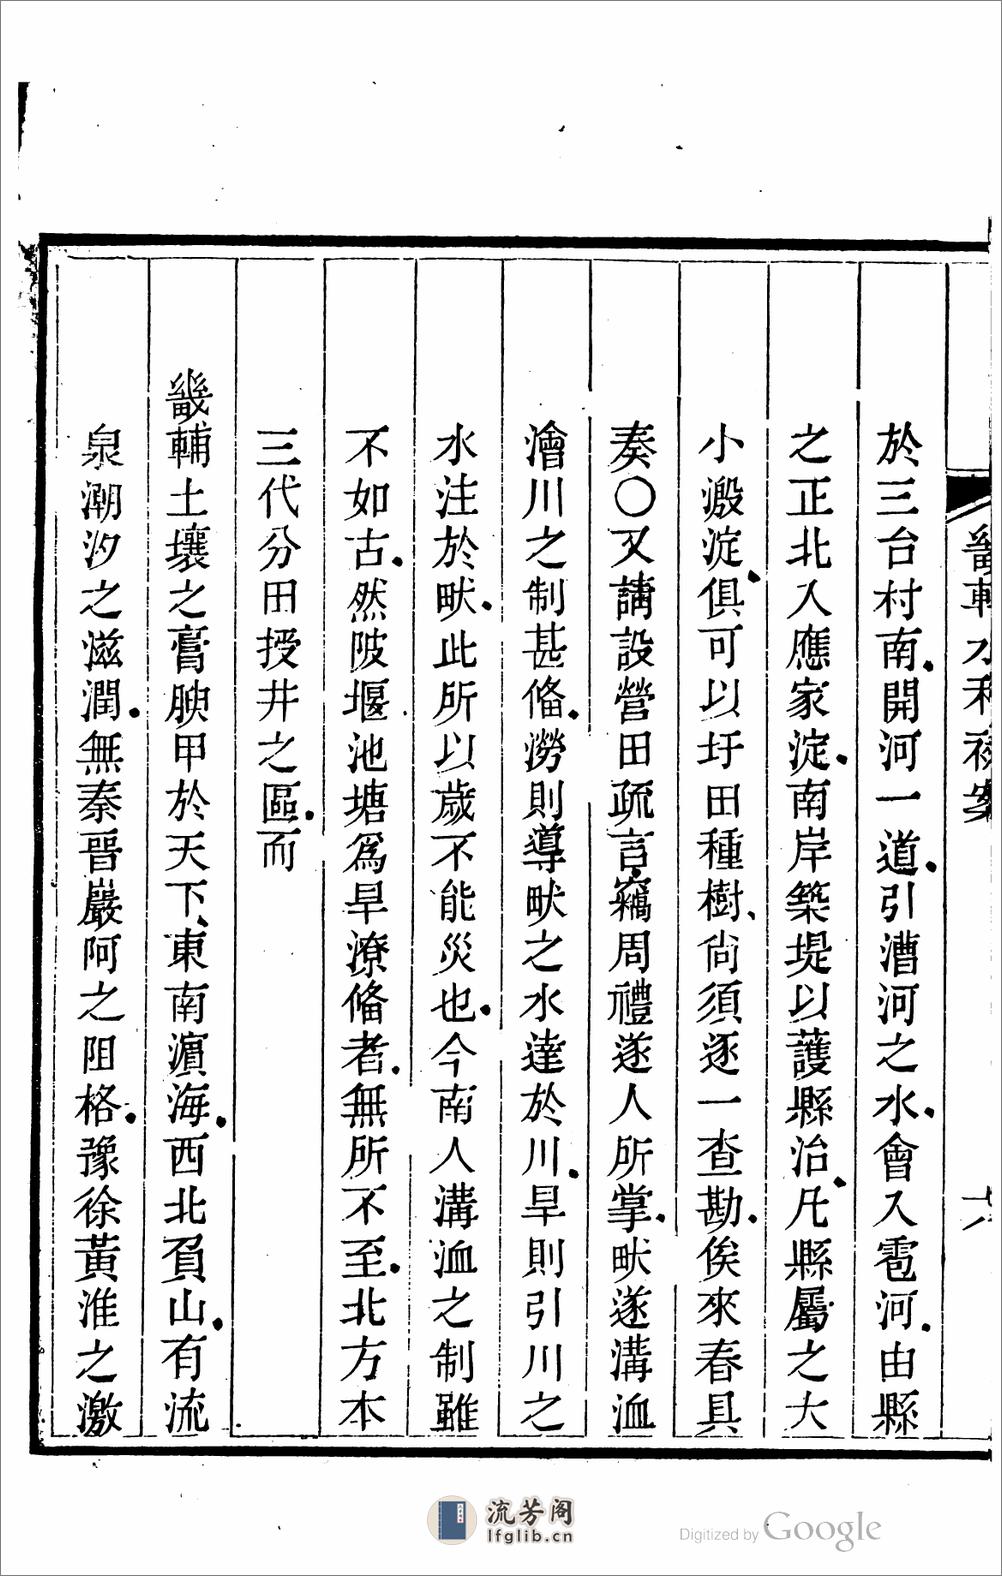 畿輔水利
於三台村南開河一道引漕河之水會入雹河由縣
之正北入應家淀南岸築堤以護縣治凡縣屬之大
小澱淀俱可以圩田種樹尙須逐一查勘俟來春具
奏〇又請設營田疏言竊周禮遂人所掌畎遂溝洫
澮川之制甚備澇則導畎之水達於川旱則引川之
水注於畎此所以歲不能災也今南人溝洫之制雖
不如古然陂堰池塘爲旱潦備者無所不至北方本
三代分田授井之區而
畿輔土壤之膏腴甲於天下東南濵海西北負山有流
泉潮汐之滋潤無秦晉巖阿之阻格豫徐黃淮之激
流芳阁
lfglib.cn
Digitized by Google